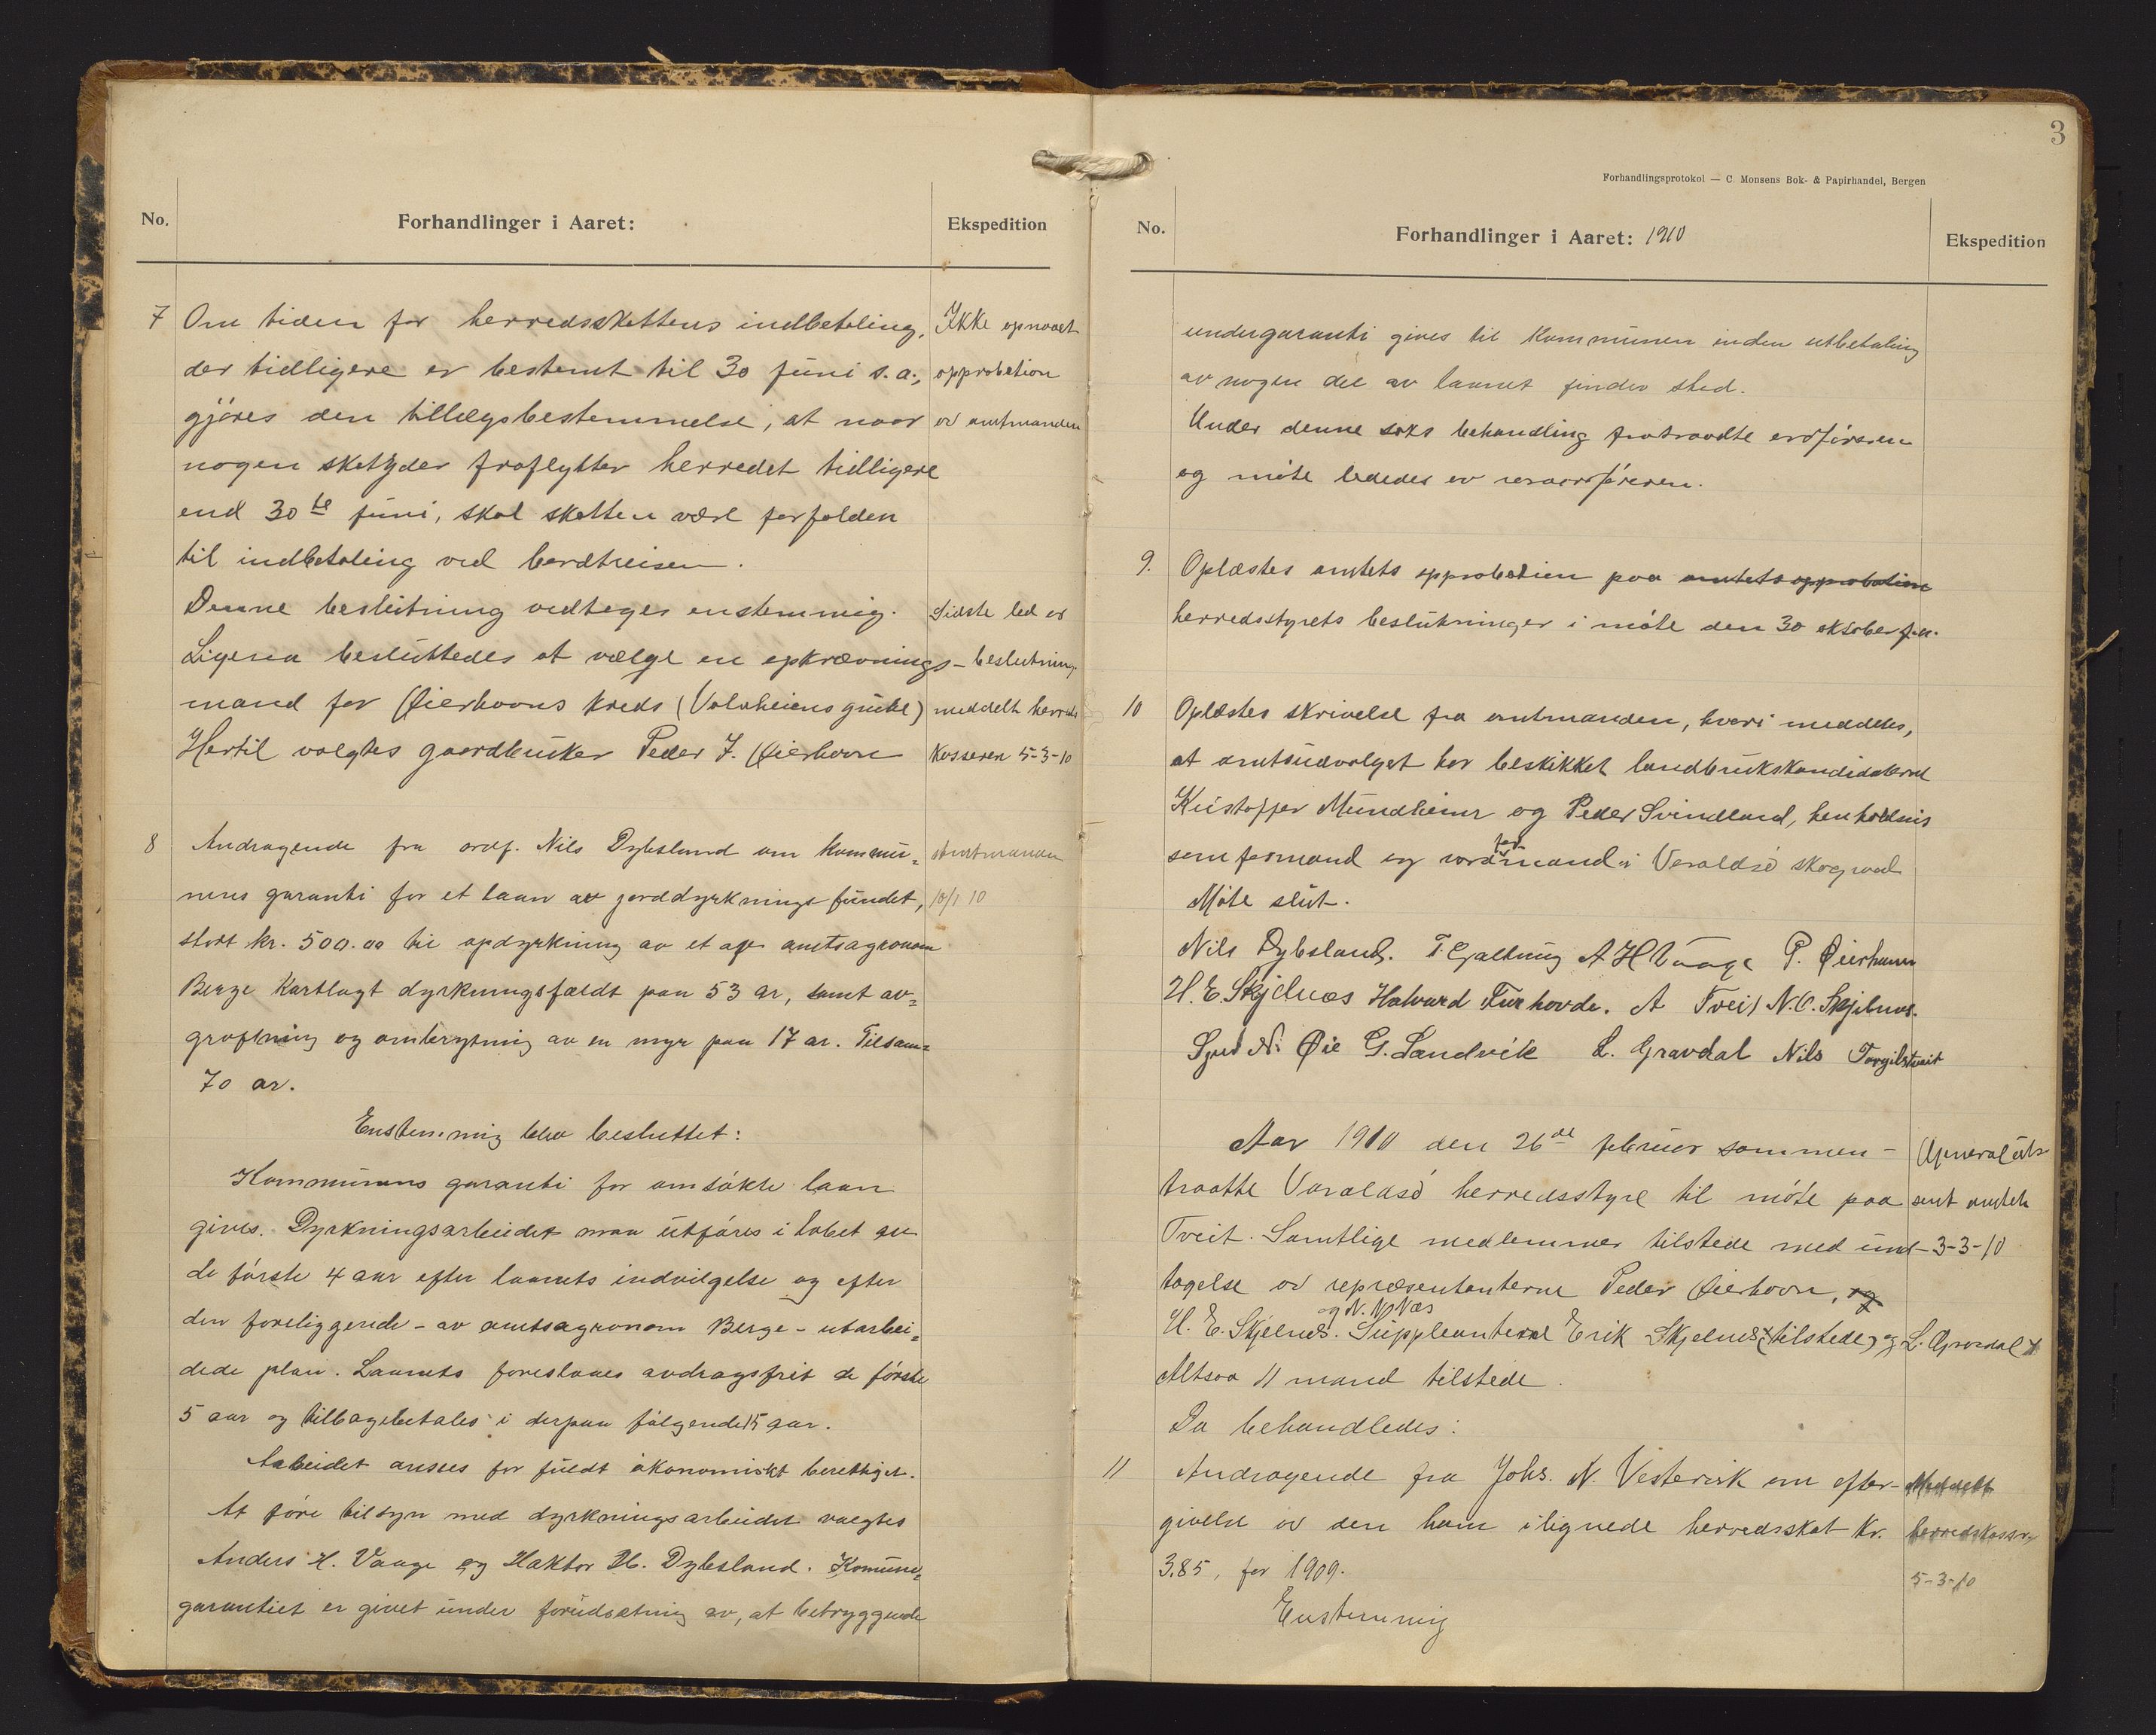 No.
Forhandlinger i Aaret:
Ekspedition
7 Om tiden for herredsskattens indbetaling,
der tidligere er bestemt til 30 juni s.a.,
gjøres den tillægsbestemmelse, at naar
nogen skatyder fraflytter herredet tidligere
end 30te juni, skal skatten være forfalden
til indbetaling ved bortreisen.
Denne beslutning vedtages enstemmig.
Ligesaa besluttedes at vælge en opkrævnings-
mand for Øierhavns kreds (Valaheiens grube)
Hertil valgtes gaardbruker Peder J. Øierhavn
Ikke opnaaet
approbation
av amtmanden
Sidste led av
beslutning
meddelt herreds
kasseren 5-3-10
8 Andragende fra ordf. Nils Dybsland om kommu-
nens garanti for et laan av jorddyrknings fundet,
stort kr. 500.00 til opdyrkning av et af amtsagronom
Berge kartlagt dyrkningsfældt paa 53 ar, samt av-
grøftning og ombrytning av en myr paa 17 ar. Tilsam-
70 ar.
Amtmanden
10/1 10
Enstemmig blev besluttet:
Kommunens garanti for omsøkte laan
gives. Dyrkningsarbeidet maa utføres i løbet av
de første 4 aar efter laanets indvilgelse og efter
den foreliggende - av amtsagronom Berge - utarbei-
dede plan. Laanets foreslaaes avdragsfrit de første
5 aar og tilbagebetales i derpaa følgende 15 aar.
Arbeidet ansees for fuldt økonomiskt berettiget.
At føre tilsyn med dyrkningsarbeidet valgtes
Anders H. Vaage og Haktor H. Dybsland. Komune-
garantiet er givet under forudsætning av, at betryggende
3
Forhandlingsprotokol — C. Monsens Bok- & Papirhandel, Bergen
No.
Forhandlinger i Aaret: 1910
Ekspedition
undergaranti gives til kommunen inden utbetaling
av nogen del av laanet finder sted.
Under denne saks behandling fratraadte ordføreren
og møte lededes av varaordføreren.
9. Oplæstes amtets approbation paa amtets approbation
herredsstyrets beslutninger i møte den 30 oktober f.a.
10 Oplæstes skrivelse fra amtmanden, hvori meddeles,
at amtsudvalget har beskikket landbrukskandidaterne
Kristoffer Mundheim og Peder Svindland, henholdsvis
som formand og varaformand i Varaldsø skograad
Møte slut.
Nils Dybsland. T Galtung A H Vaage P. Øierhavn
H. E. Skjelnæs Halvard Turhovde. A Tveit N. O. Skjelnæs.
Sjur N. Øie G. Sandvik L. Gravdal Nils Torgilstveit
Aar 1910 den 26de februar sammen-
traatte Varaldsø herredsstyre til møte paa
Tveit. Samtlige medlemmer tilstede med und-
tagelse av repræsentanterne Peder Øierhavn, og
H. E. Skjelnæs. og N. N Næs Suppleanterne Erik Skjelnæs (tilstede) og L. Gravdal
Altsaa 11 mand tilstede.
Da behandledes:
sent amtets
3-3-10
11 Andragende fra Johs. N. Vestervik om efter-
givelse av den ham ilignede herredsskat kr.
3.85, for 1909.
Enstemmig
Meddelt
herredskasser
5-3-10